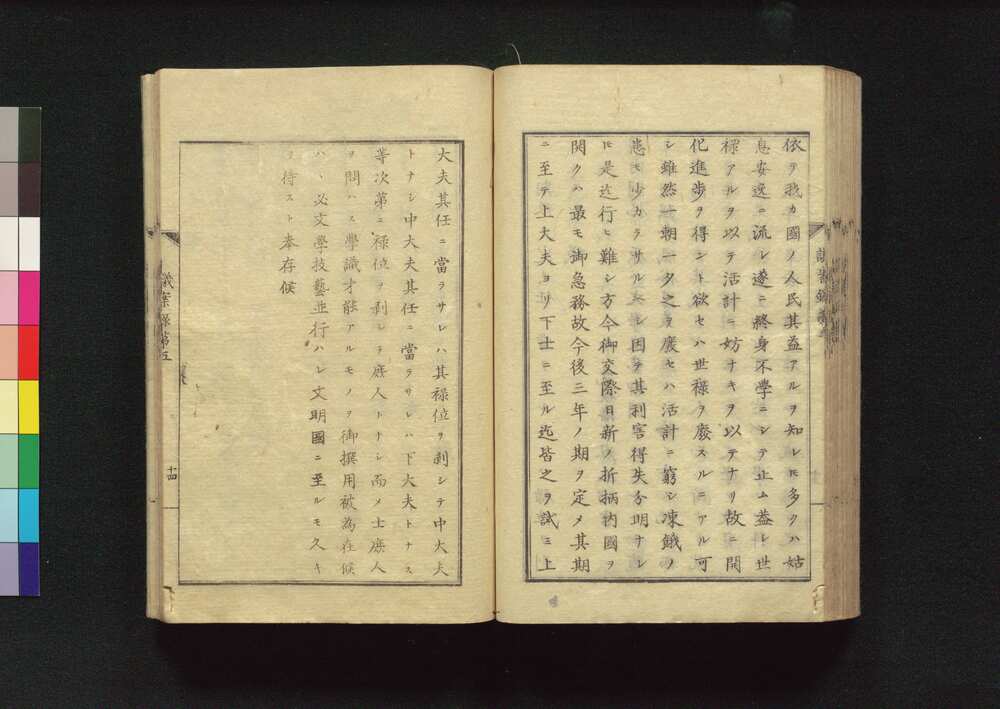 依テ我カ國ノ人民其益アルヲ知レ𪜈多クハ姑
息安逸ニ流レ遂ニ終身不學ニシテ止ム蓋シ世
禄アルヲ以テ活計ニ妨ナキヲ以テナリ故ニ開
化進歩ヲ得ント欲セハ世禄ヲ廢スルニアル可
シ雖然一朝一夕之ヲ廢セハ活計ニ窮シ凍餓ノ
患モ少カラサルヘシ因テ其利害得失分明ナレ
𪜈是迄行ヒ難シ方今御交際日新ノ折柄内國ヲ
開クハ最モ御急務故今後三年ノ期ヲ定メ其期
ニ至テ上大夫ヨリ下士ニ至ル迄皆之ヲ試ミ上
大夫其任ニ當ラサレハ其禄位ヲ剥シテ中大夫
トナシ中大夫其任ニ當ラサレハ下大夫トナス
等次第ニ禄位ヲ剥シテ庶人トナシ而メ士庶人
ヲ問ハス學識才能アルモノヲ御撰用被為在候
ハヽ必文學技藝並行ハレ文明國ニ至ルモ久キ
ヲ待スト奉存候
議案録第五
十四